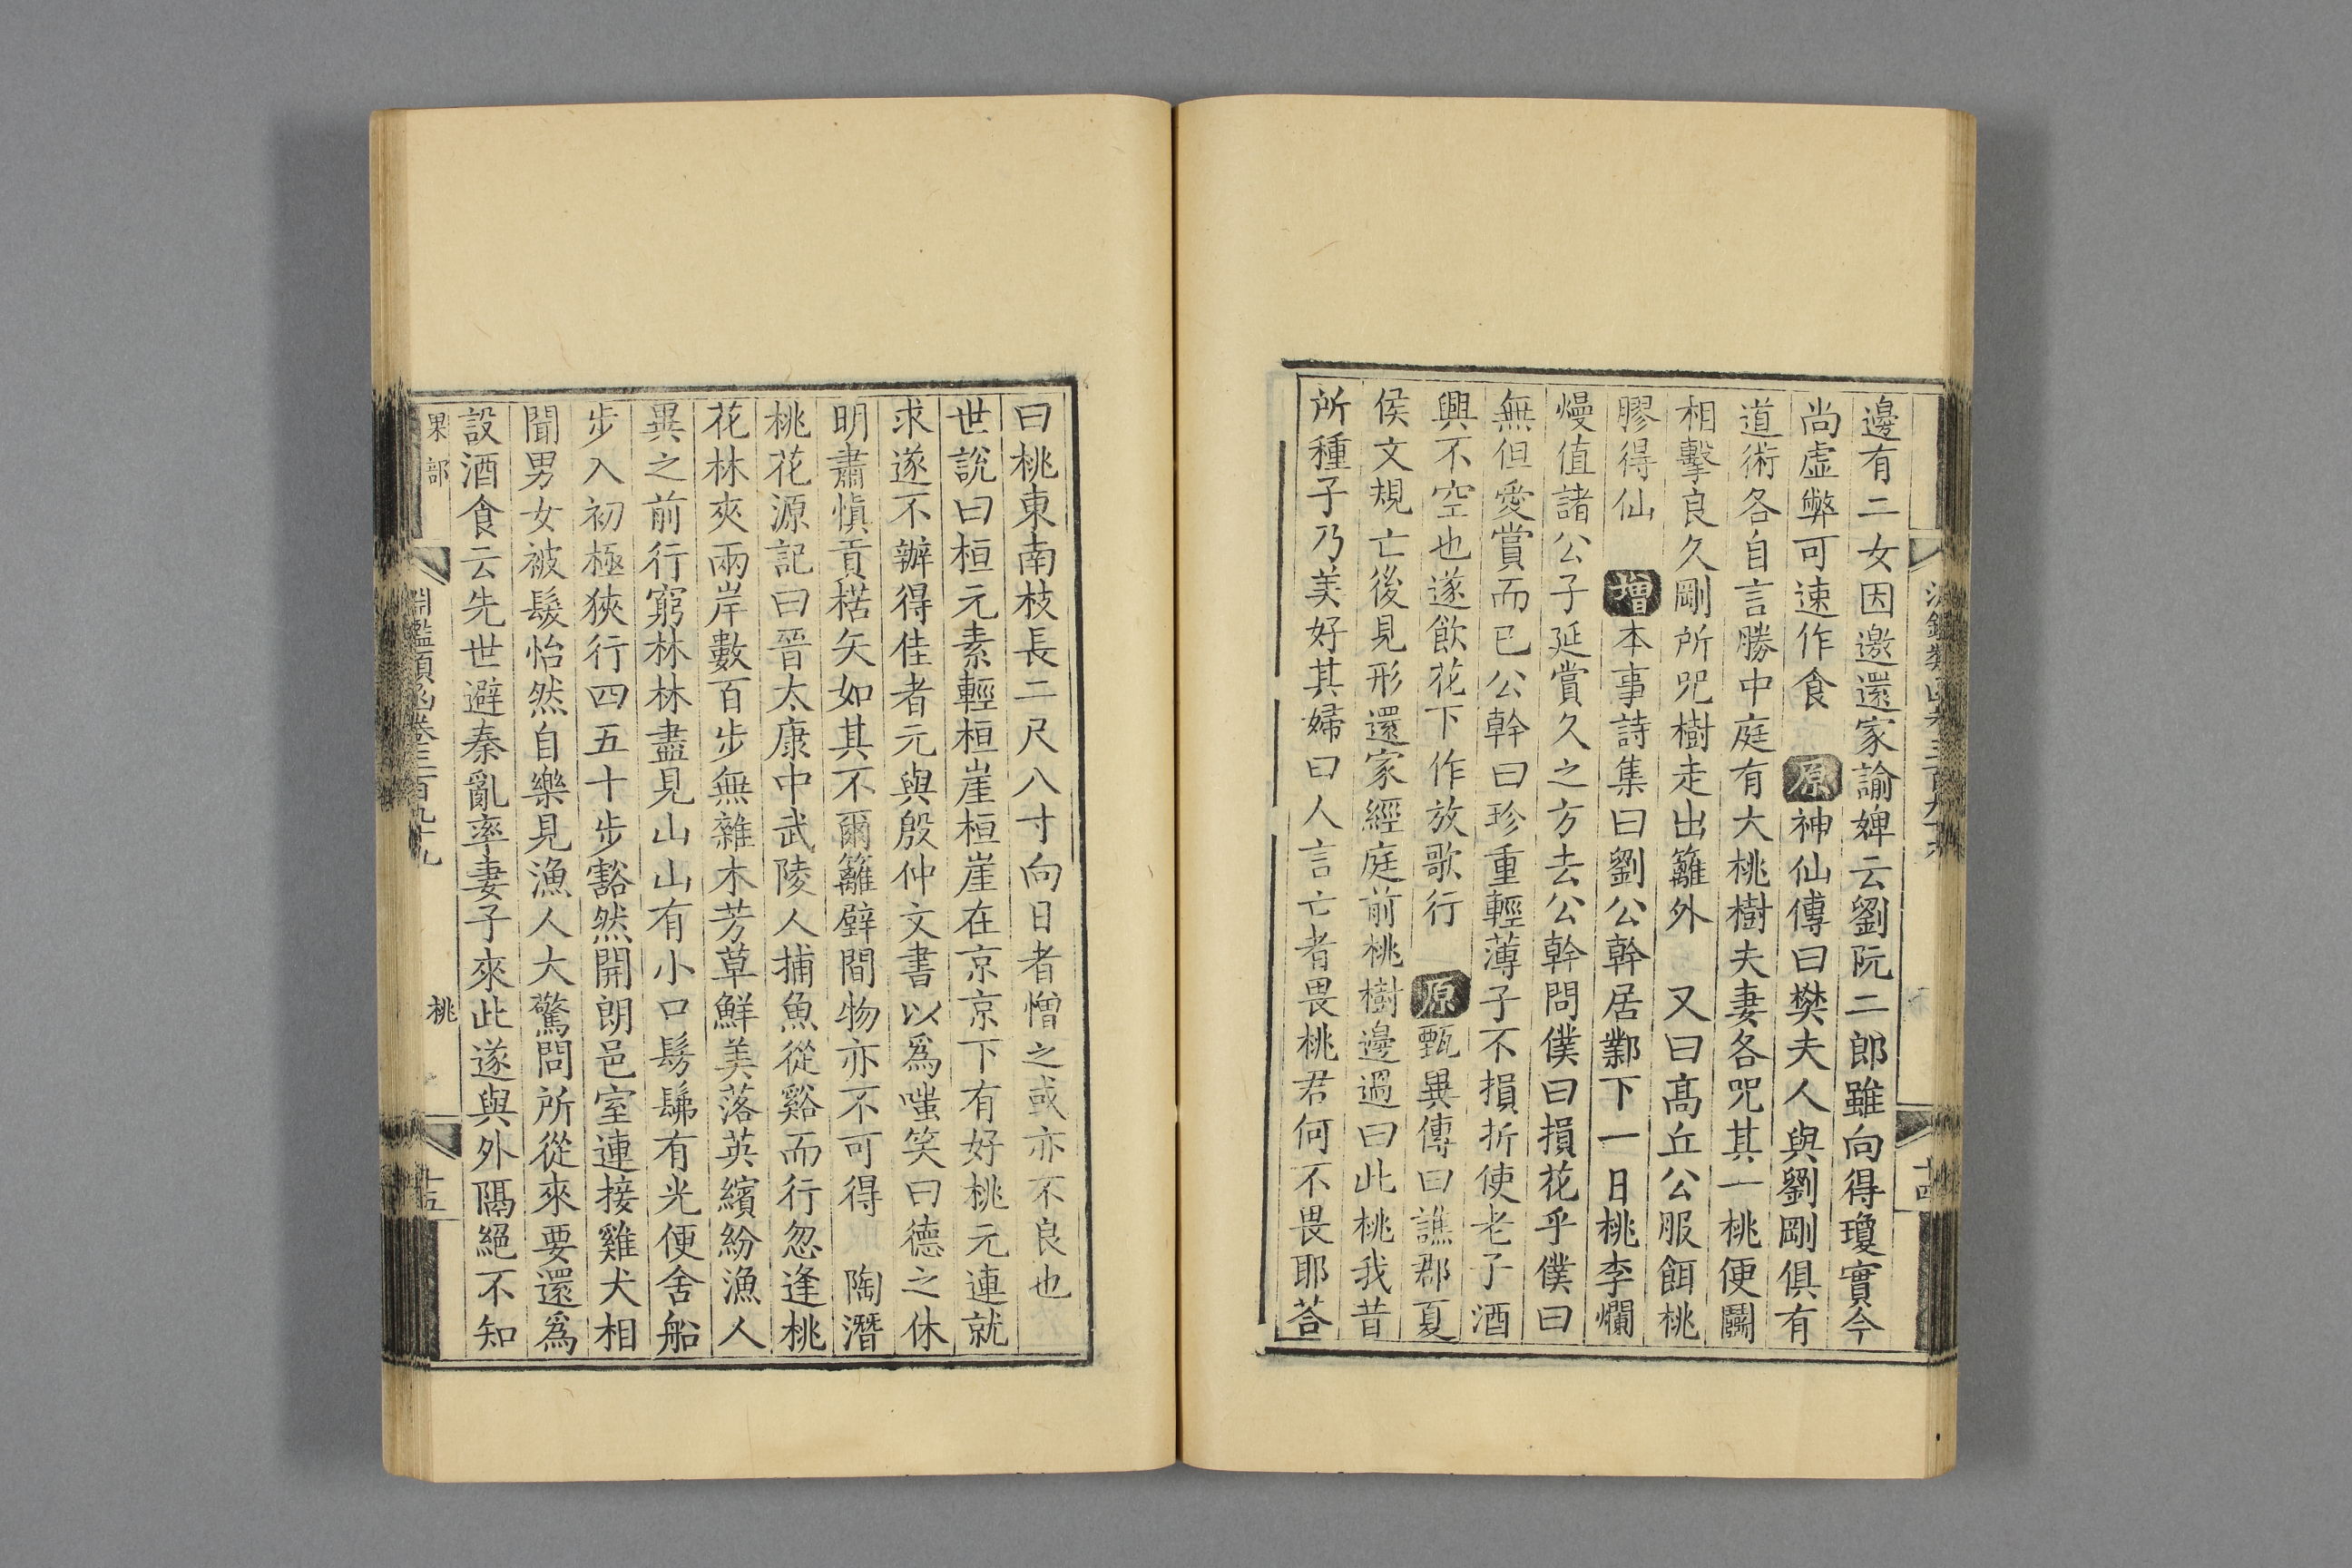 邊有二女因邀還家諭婢云劉阮二郎雖向得瓊實今
尚虛弊可速作食　原神仙傳曰樊夫人與劉剛俱有
道術各自言勝中庭有大桃樹夫妻各咒其一桃便鬭
相擊良久剛所咒樹走出籬外　又曰高丘公服餌桃
膠得仙　增本事詩集曰劉公幹居鄴下一日桃李爛
熳值諸公子延賞久之方去公幹問僕曰損花乎僕曰
無但愛賞而已公幹曰珍重輕薄子不損折使老子酒
興不空也遂飲花下作放歌行　原甄異傳曰譙郡夏
侯文規亡後見形還家經庭前桃樹邊過曰此桃我昔
所種子乃美好其婦曰人言亡者畏桃君何不畏耶荅
曰桃東南枝長二尺八寸向日者憎之或亦不良也
世說曰桓元素輕桓崖桓崖在京京下有好桃元連就
求遂不辦得佳者元與殷仲文書以為嗤笑曰德之休
明肅慎貢楛矢如其不爾籬壁間物亦不可得　陶潛
桃花源記曰晉太康中武陵人捕魚從谿而行忽逢桃
花林夾兩岸數百步無雜木芳草鮮美落英繽紛漁人
異之前行窮林林盡見山山有小口髣髴有光便舍船
步入初極狹行四五十步豁然開朗邑室連接雞犬相
聞男女被髮怡然自樂見漁人大驚問所從來要還為
設酒食云先世避秦亂率妻子來此遂與外隔絕不知
果部　淵鑑類函卷三百九十九　桃　十五